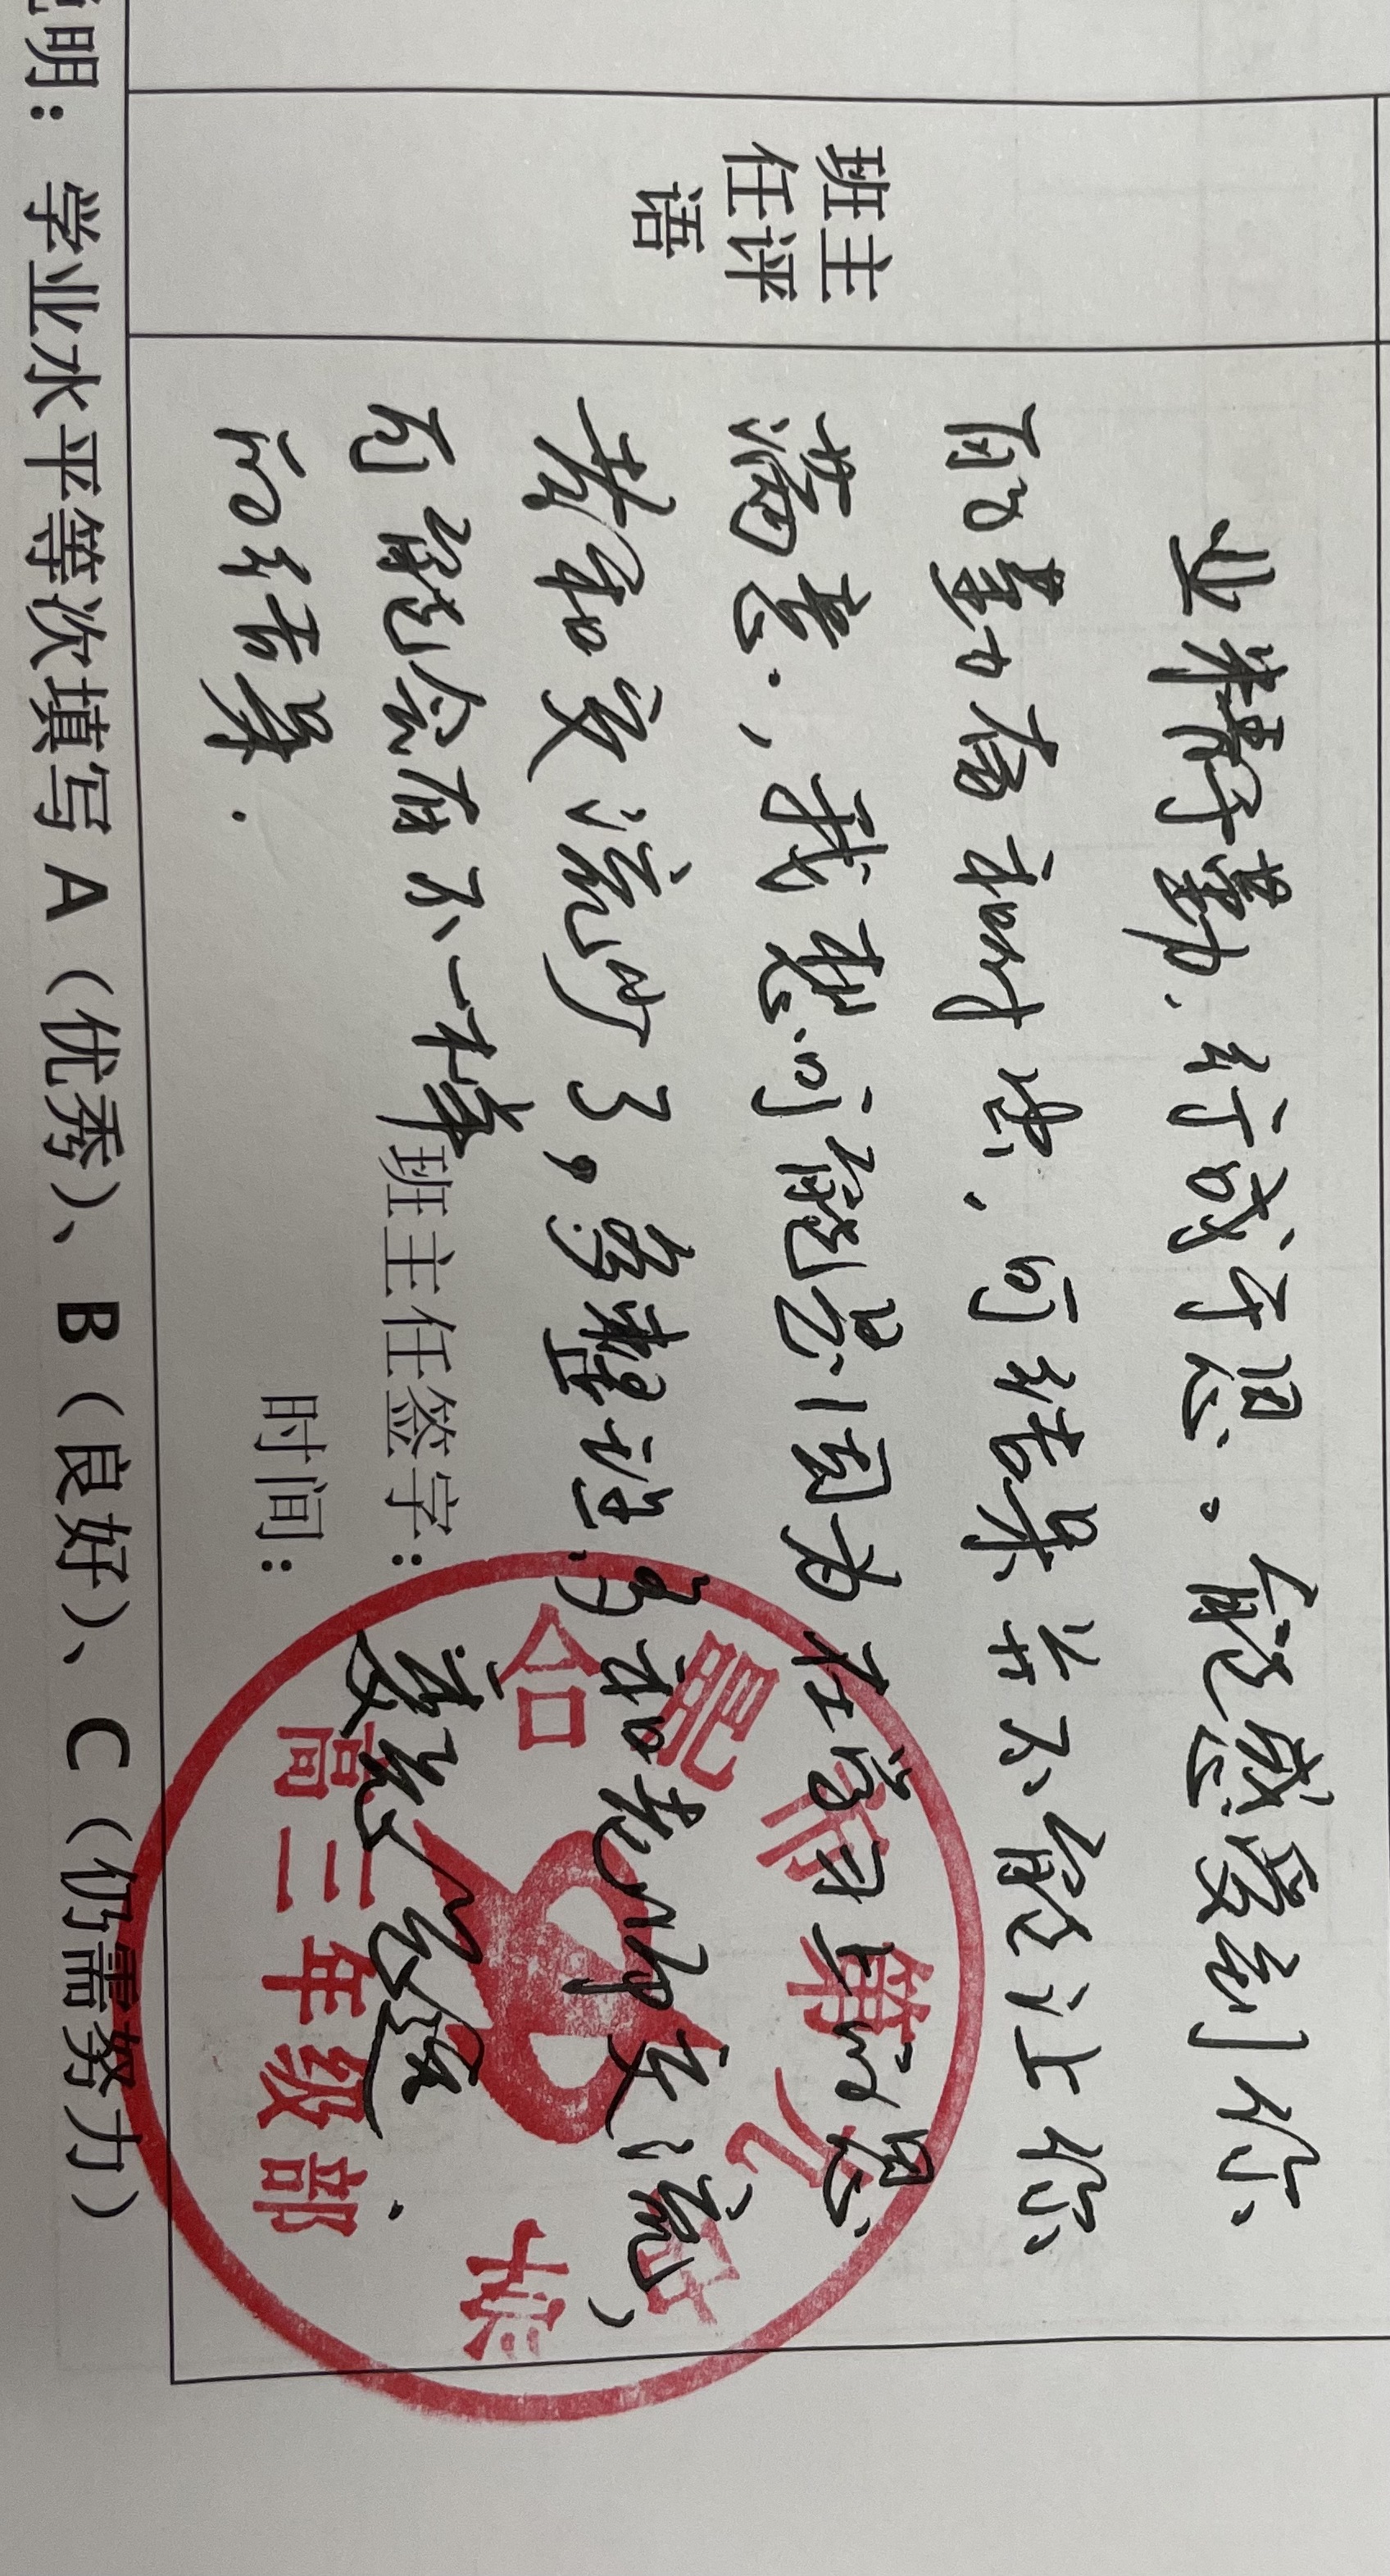 班主
任评
语
业精于勤，行成于思。能感受到你
可结果并不能让你
满意，我想可能是因为在学习上的思
考和交流少了，多整理，多和老师交流，
可能会有不一样
的结果.
班主任签字：
时间：
合肥市第 中学
高三年级部
明：学业水平等次填写 A（优秀）、B（良好）、C（仍需努力）